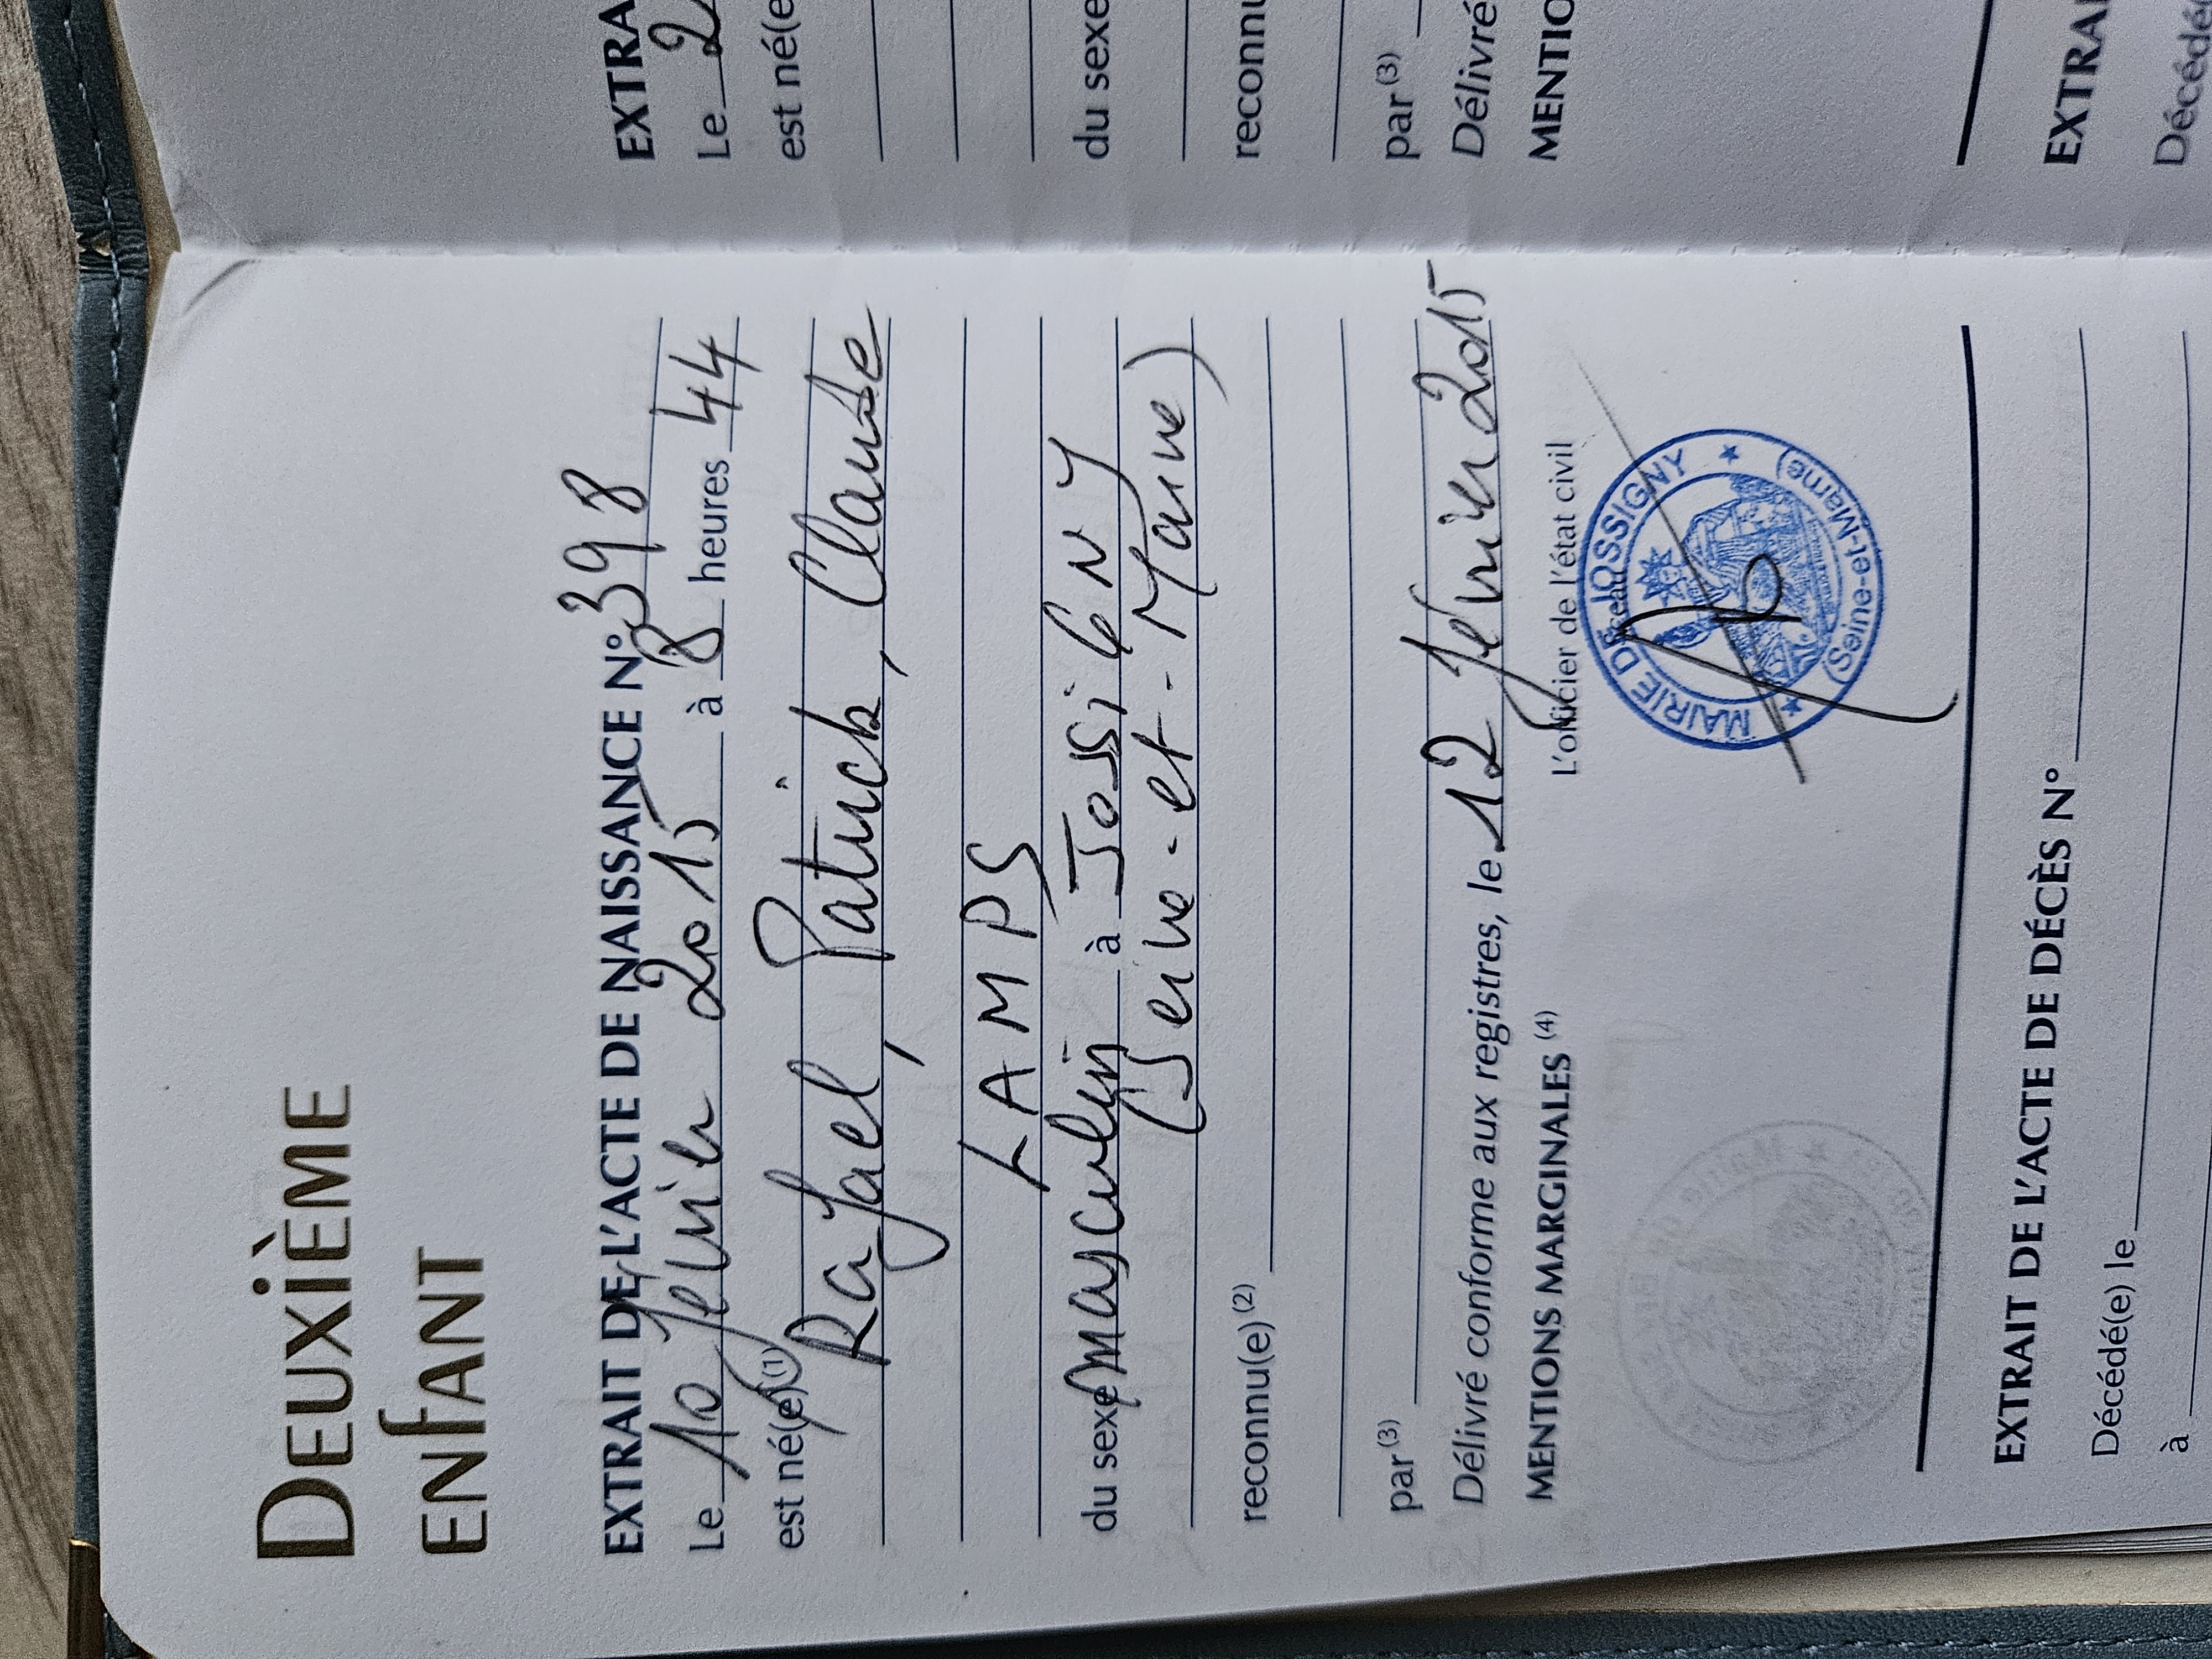 DEUXIÈME
ENFANT
EXTRAIT DE L'ACTE DE NAISSANCE N° 398
Le 10 février 2015 à 8 heures 44
est né(e)(1)
Rafael, Patrick, Claude
LAMPS
du sexe masculin à JossiGNY
(Seine-et-Marne)
reconnu(e)(2)
par(3)
Délivré conforme aux registres, le 12 février 2015
MENTIONS MARGINALES (4)
L'officier de l'état civil
Sceau
MAIRIE DE JOSSIGNY
(Seine-et-Marne)
EXTRAIT DE L'ACTE DE DÉCÈS N°
Décédé(e) le
à
EXTRA
Le 2
est né(e
du sexe
reconnu
par(3)
Délivré
MENTIO
EXTRAI
Décédé